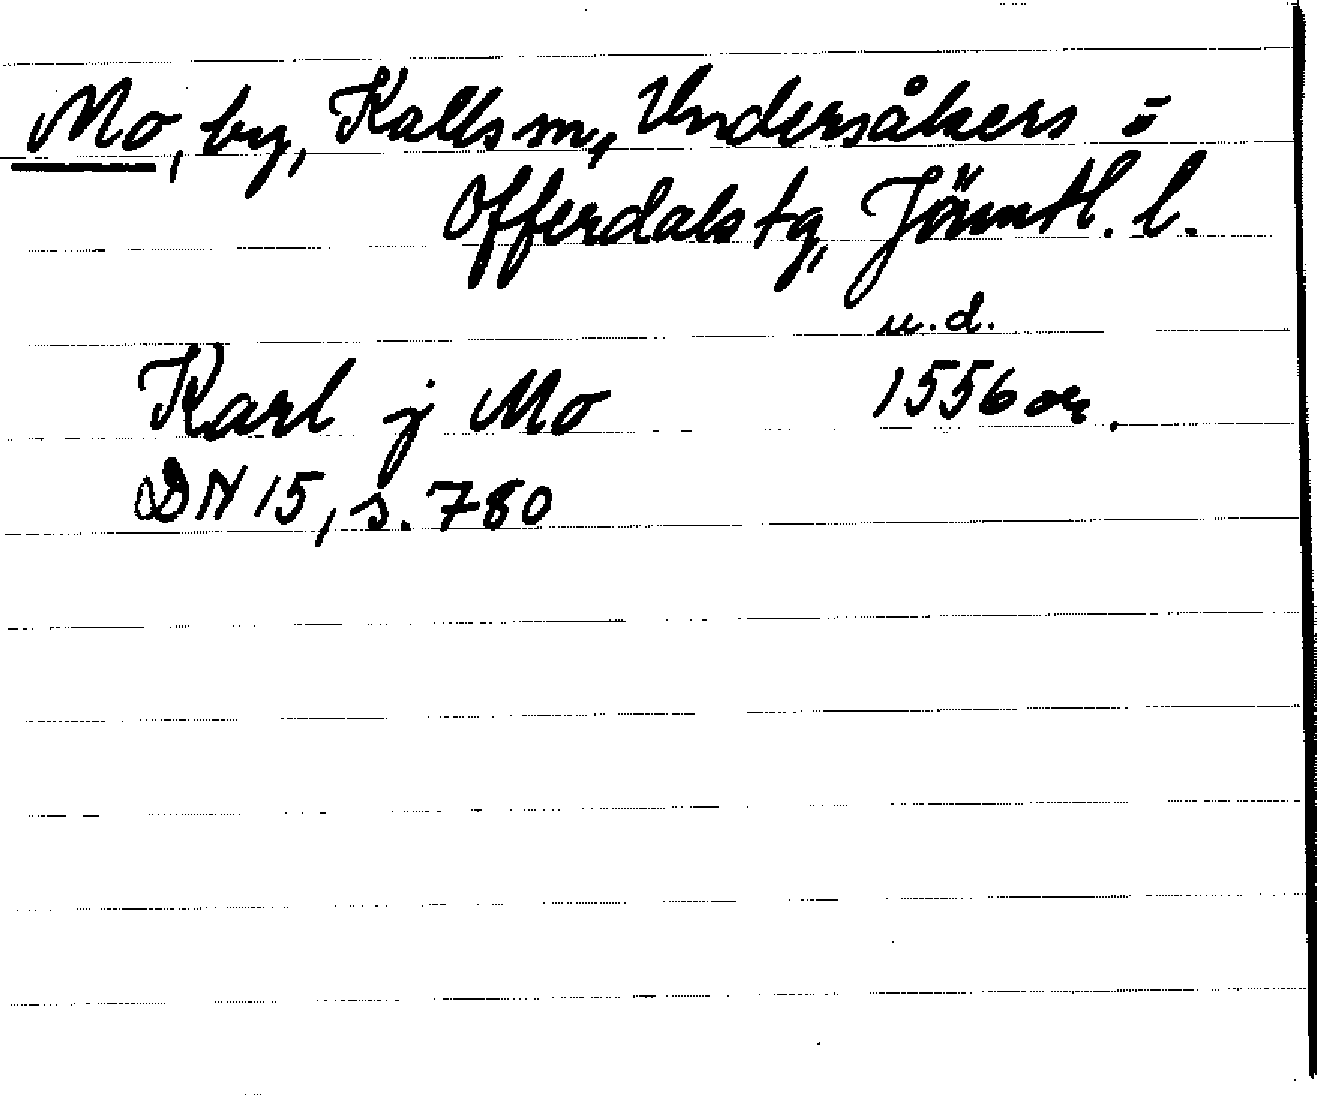 Mo, by, Kalls sn, Undersåkers o
Offerdals tg, Jämtl. l.
u.d.
Karl j Mo 1556 or.
DN 15, s. 780